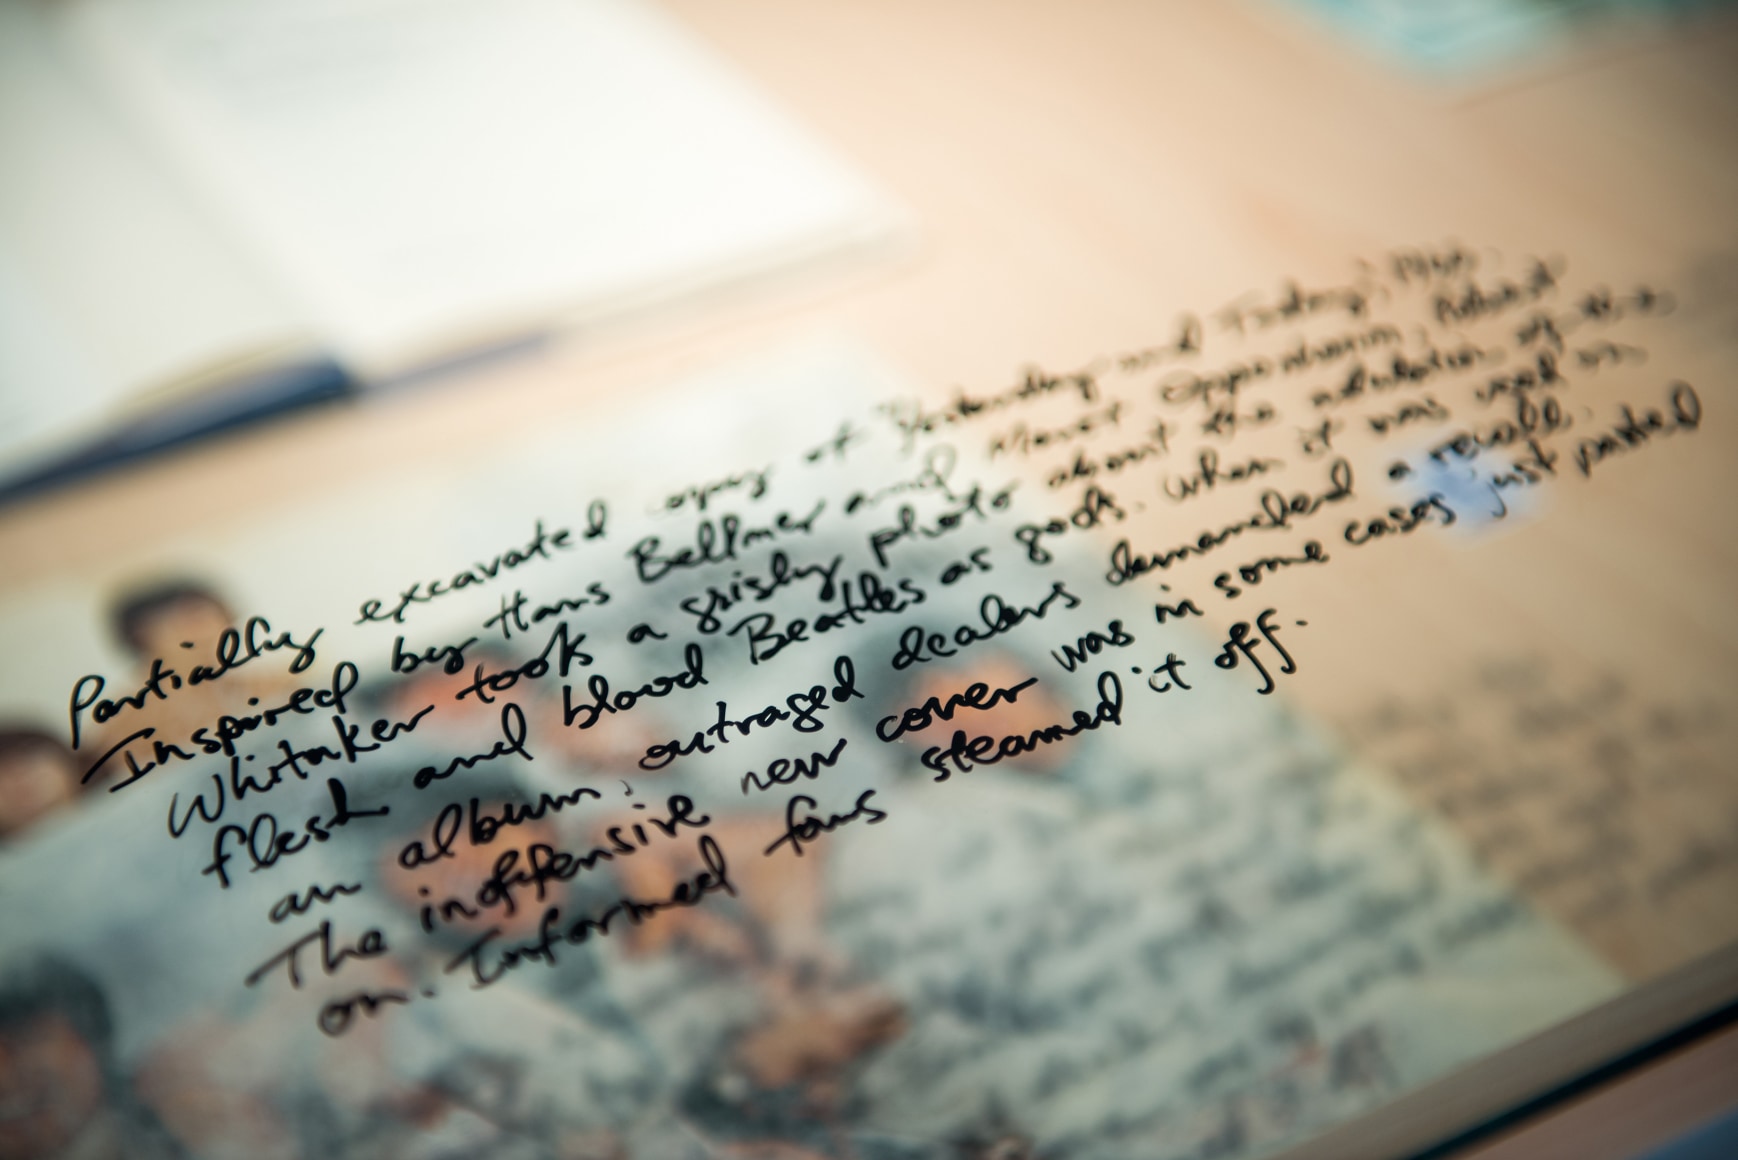 Partially excavated copy of Yesterday and Today, 1966.
Inspired by Hans Bellmer and Meret Oppenheim, Robert
Whitaker took a grisly photo about the adulation of the
flesh and blood Beatles as gods. When it was used on
an album, outraged dealers demanded a recall.
The inoffensive new cover was in some cases just pasted
on. Informed fans steamed it off.